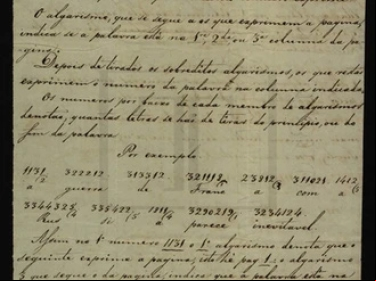 O algarismo, que se segue a os que exprimem a pagina,
indica se a palavra está na 1ª, 2ª ou 3ª columna da pa-
gina.
Depois de tirados os sobreditos algarismos, os que restão
exprimem o numero da palavra na columna indicada.
Os numeros por baixo de cada membro de algarismos
denotão, quantas letras se hão de tirar do principio, ou do
fim da palavra.
Por exemplo
1131/2 322212. 313312. 321119/ 23912 311021 1412/
a guerra de Franc a com a
334432 335422 1211/ 3290219/ 3234124.
Rus si a parece inevitavel.
Assim no 1º numero 1131 o 1º algarismo denota que o
seguinte exprime a pagina, isto he pag 1: o algarismo
3 que segue o da pagina, indica que a palavra está na